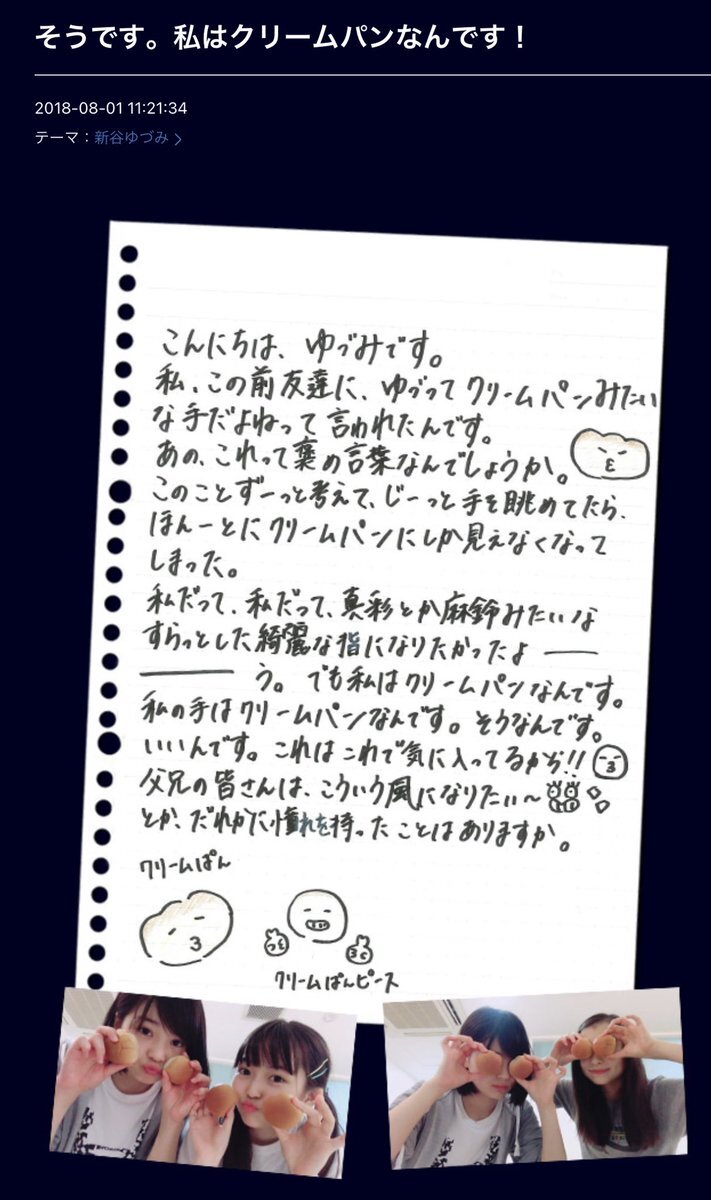 そうです。私はクリームパンなんです！
2018-08-01 11:21:34
テーマ：新谷ゆづみ >
こんにちは、ゆづみです。
私、この前友達に、ゆづってクリームパンみたい
な手だよねって言われたんです。
あの、これって褒め言葉なんでしょうか。
このことずーっと考えて、じーっと手を眺めてたら、
ほんーとにクリームパンにしか見えなくなって
しまった。
私だって、私だって、真彩とか麻鈴みたいな
すらっとした綺麗な指になりたかったよ――
――う。でも私はクリームパンなんです。
私の手はクリームパンなんです。そうなんです。
いいんです。これはこれで気に入ってるから!!
父兄の皆さんは、こういう風になりたい〜
とか、だれかに憧れを持ったことはありますか。
クリームぱん
クリームぱんピース